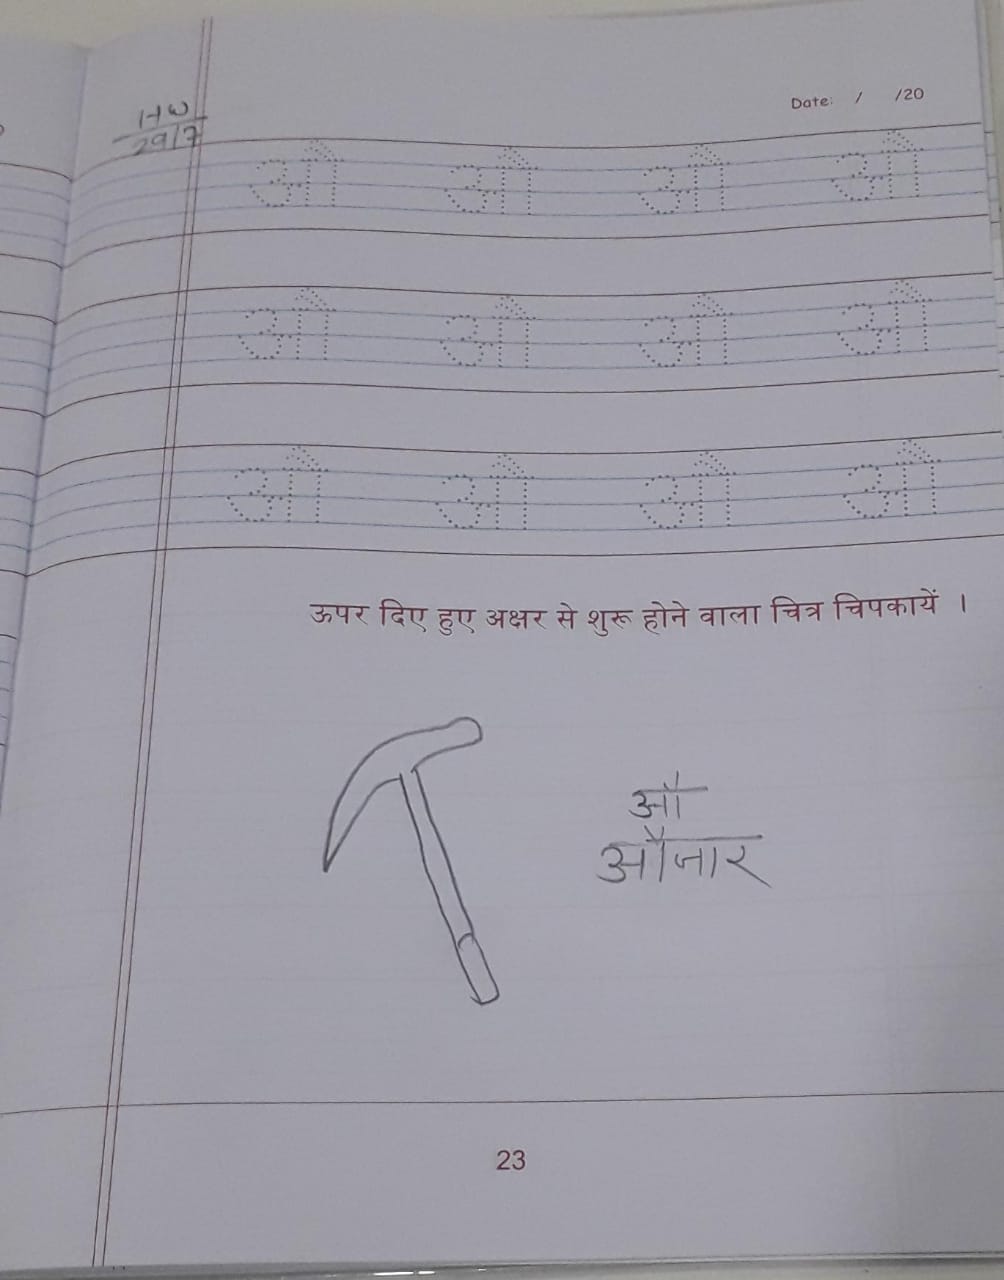 HW
29/7
Date: / /20
औ औ औ औ
औ औ औ औ
औ औ औ औ
ऊपर दिए हुए अक्षर से शुरू होने वाला चित्र चिपकायें ।
औ
औजार
23